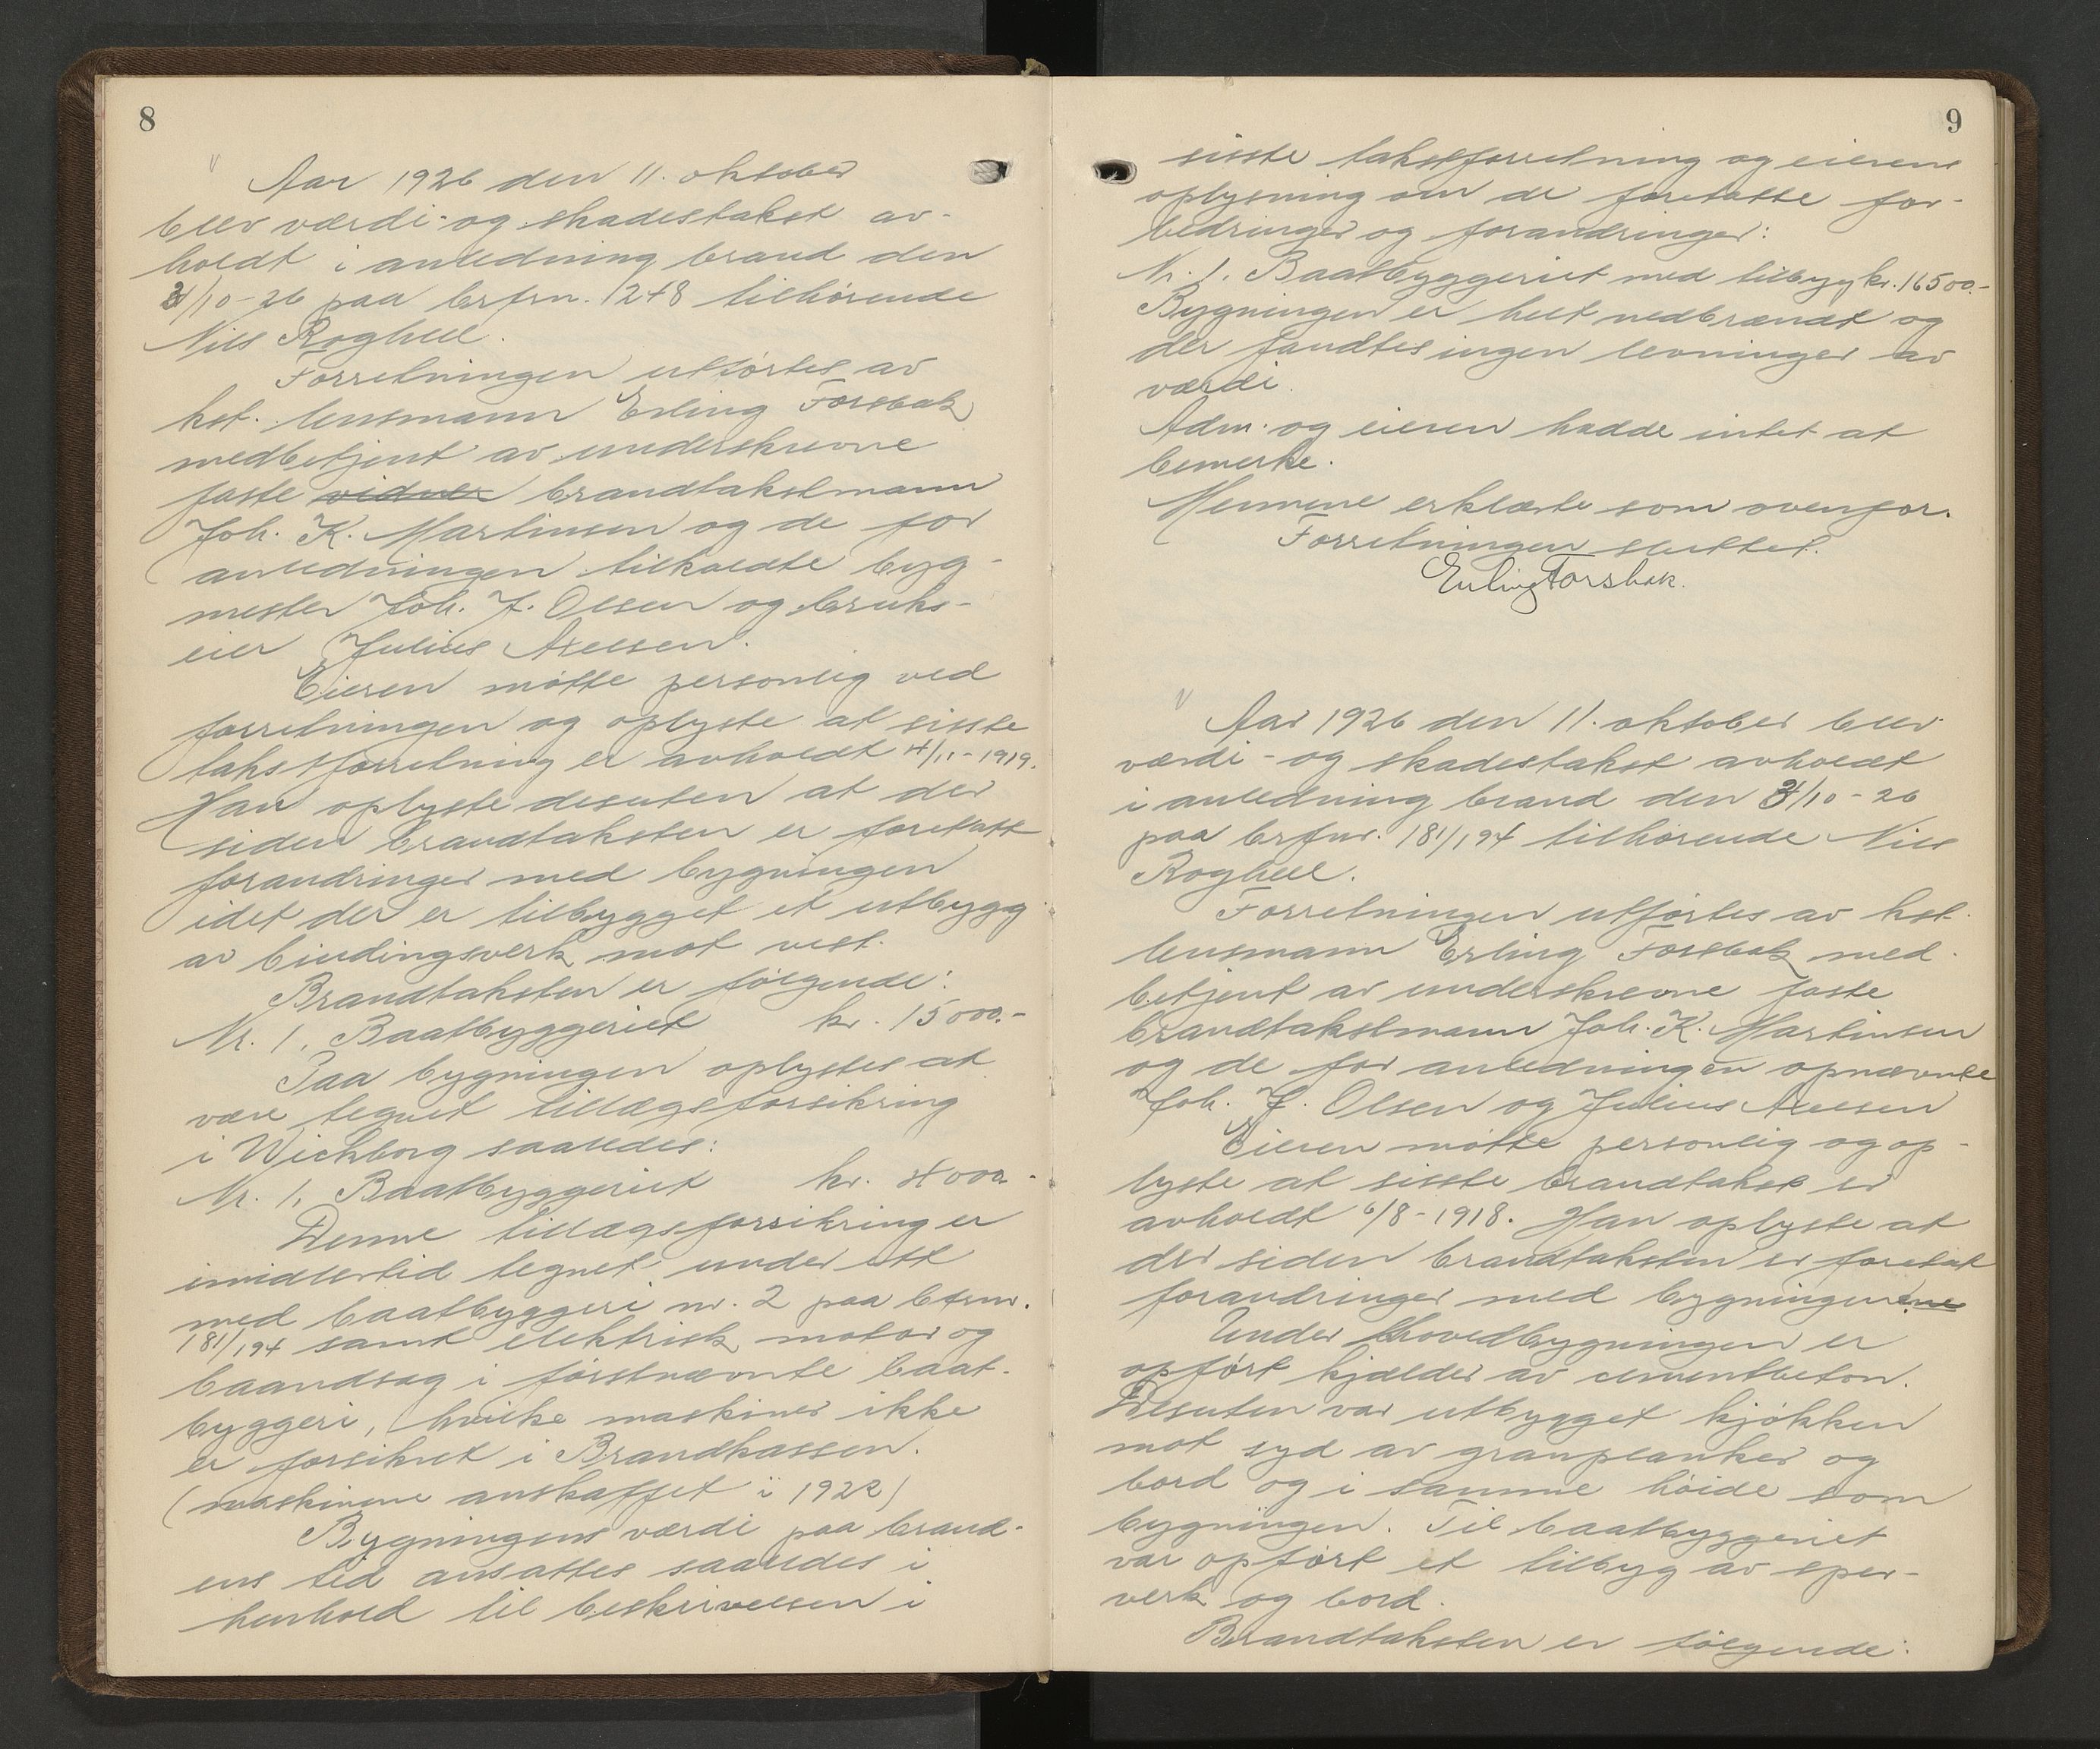 8
Aar 1926 den 11. oktober
blev værdi- og skadestakst av-
holdt i anledning brand den
/10-26 paa brfrn. 1248 tilhørende
Nils Roghell.
Forretningen utførtes av
kst. lensmann Erling Forsbak
medbetjent av underskrevne
faste vidner brandtakstmann
Joh. K. Martinsen og de for
anledningen tilkaldte byg-
mester Joh. J. Olsen og bruks-
eier Julius Axelsen.
Eieren møtte personlig ved
forretningen og oplyste at sisste
takstforretning er avholdt 4/11-1919.
Han oplyste desuten at der
siden brandtaksten er foretatt
forandringer med bygningen
idet der er tilbygget et utbygg
av bindingsverk mot vest.
Brandtaksten er følgende:
Nr. 1, Baatbyggeriet kr. 15000.-
Paa bygningen oplystes at
være tegnet tillægsforsikring
i Wichborg saaledes:
Nr. 1, Baatbyggeriet kr. 4000.-
Denne tillægsforsikring er
imidlertid tegnet under ett
med baatbyggeri nr. 2 paa bfrnr.
181/194 samt elektrisk motor og
baandsag i førstnævnte baat-
byggeri, hvilke maskiner ikke
er forsikret i Brandkassen.
(maskinene anskaffet i 1922)
Bygningens værdi paa brand-
ens tid ansattes saaledes i
henhold til beskrivelsen i
9
sisste takstforretning og eierens
oplysning om de foretatte for-
bedringer og forandringer:
Nr. 1. Baatbyggeriet med tilbygg kr. 16500.-
Bygningen er helt nedbrændt og
der fandtes ingen levninger av
værdi.
Adm. og eieren hadde intet at
bemerke.
Mennene erklærte som ovenfor.
Forretningen sluttet.
Erling Forsbak.
Aar 1926 den 11. oktober blev
værdi- og skadestakst avholdt
i anledning brand den /10-26
paa brfnr. 181/194 tilhørende Nils
Roghell.
Forretningen utførtes av kst.
lensmann Erling Forsbak med-
betjent av underskrevne faste
brandtakstmann Joh. K. Martinsen
og de for anledningen opnævnte
Joh. J. Olsen og Julius Axelsen
Eieren møtte personlig og op-
lyste at sisste brandtakst er
avholdt 6/8-1918. Han oplyste at
der siden brandtaksten er foretat
forandringer med bygningenene
Under hovedbygningen er
opført kjælder av cementbeton.
Desuten var utbygget kjøkken
mot syd av granplanker og
bord og i samme høide som
bygningen. Til baatbyggeriet
var opført et tilbyg av sper-
verk og bord.
Brandtaksten er følgende: